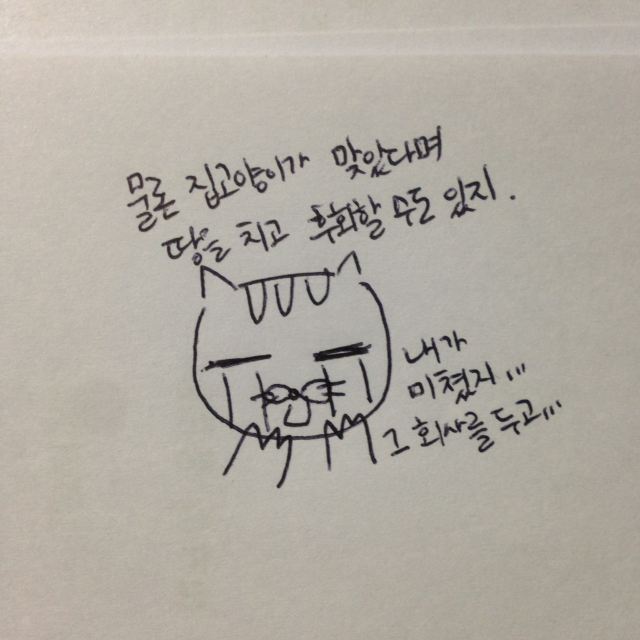 물론 집고양이가 맞았다며
땅을 치고 후회할 수도 있지.
내가
미쳤지...
그 회사를 두고...